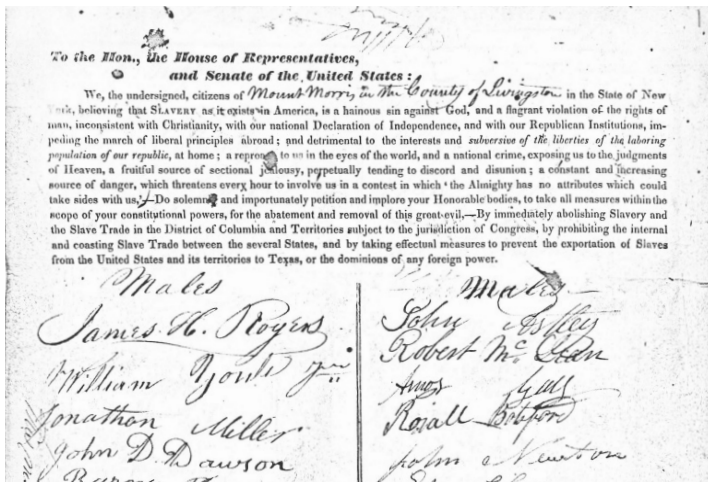 To the Hon., the House of Representatives,
and Senate of the United States:
We, the undersigned, citizens of Mount Morris in the County of Livingston in the State of New
York, believing that SLAVERY as it exists in America, is a hainous sin against God, and a flagrant violation of the rights of
man, inconsistent with Christianity, with our national Declaration of Independence, and with our Republican Institutions, im-
peding the march of liberal principles abroad; and detrimental to the interests and subversive of the liberties of the laboring
population of our republic, at home; a reproach to us in the eyes of the world, and a national crime, exposing us to the judgments
of Heaven, a fruitful source of sectional jealousy, perpetually tending to discord and disunion; a constant and increasing
source of danger, which threatens every hour to involve us in a contest in which 'the Almighty has no attributes which could
take sides with us,'—Do solemnly and importunately petition and implore your Honorable bodies, to take all measures within the
scope of your constitutional powers, for the abatement and removal of this great evil,—By immediately abolishing Slavery and
the Slave Trade in the District of Columbia and Territories subject to the jurisdiction of Congress, by prohibiting the internal
and coasting Slave Trade between the several States, and by taking effectual measures to prevent the exportation of Slaves
from the United States and its territories to Texas, or the dominions of any foreign power.
Males
James H. Rogers
William
Jonathan Miller
John D. Dawson
Males
John Astley
Robert McClean
Amos
Rosall Botsford
John Newton